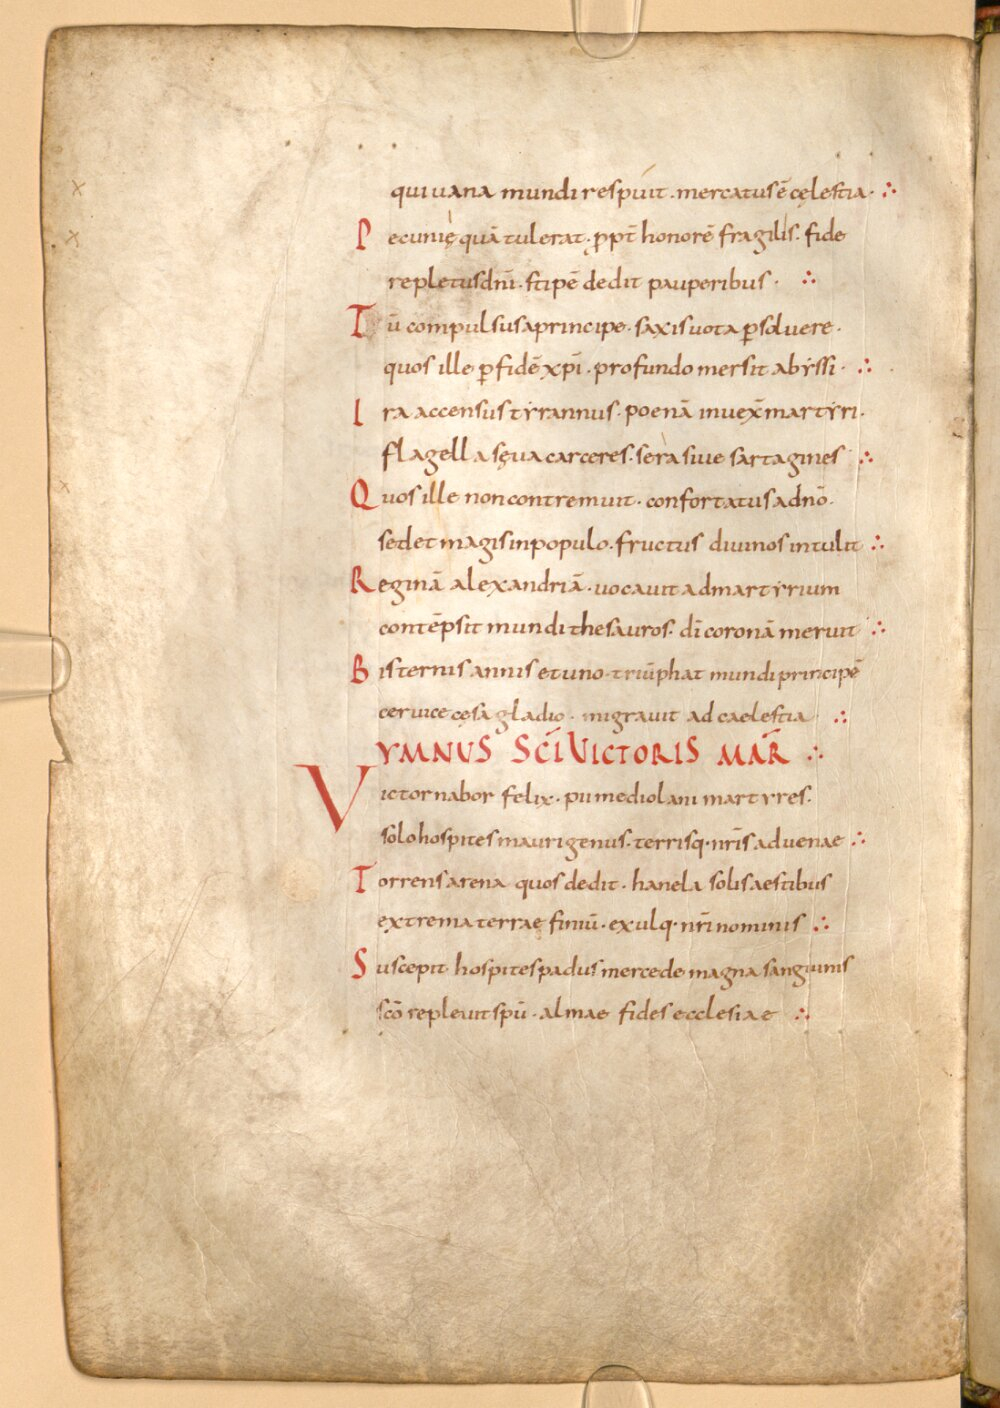 qui uana mundi respuit. mercatus ē cęlestia ∴
Pecunię quā tulerat. ꝓpt̄ honorē fragilis. fide
repletus dn̄i. stipē dedit pauperibus. ∴
Tū compulsus a principe. saxis uota ꝑsoluere.
quos ille ꝑ fidē xp̄i. profundo mersit abẏssi. ∴
Ira accensus tẏrannus. poenā inuex̄ martẏri.
flagella sęua carceres. sera siue sartagines ∴
Quos ille non contremuit. confortatus a dn̄o.
sed et magis in populo. fructus diuinos intulit ∴
Reginā alexandriā. uocauit ad martẏrium
contēpsit mundi thesauros. dī coronā meruit ∴
Bis ternis annis et uno. triūphat mundi principē
ceruice cęsa gladio. migrauit ad caelestia ∴
YMNUS SC̄I VICTORIS MAR̄ ∴
Victor nabor felix. pii mediolani martyres.
solo hospites maurigenus. terrisq. nr̄is aduenae ∴
Torrens arena quos dedit. hanela solis aestibus
extrema terrae finiū. exulq. nr̄i nominis ∴
Suscepit hospites padus mercede magna sanguinis
sc̄o repleuit spū. almae fides ecclesiae ∴